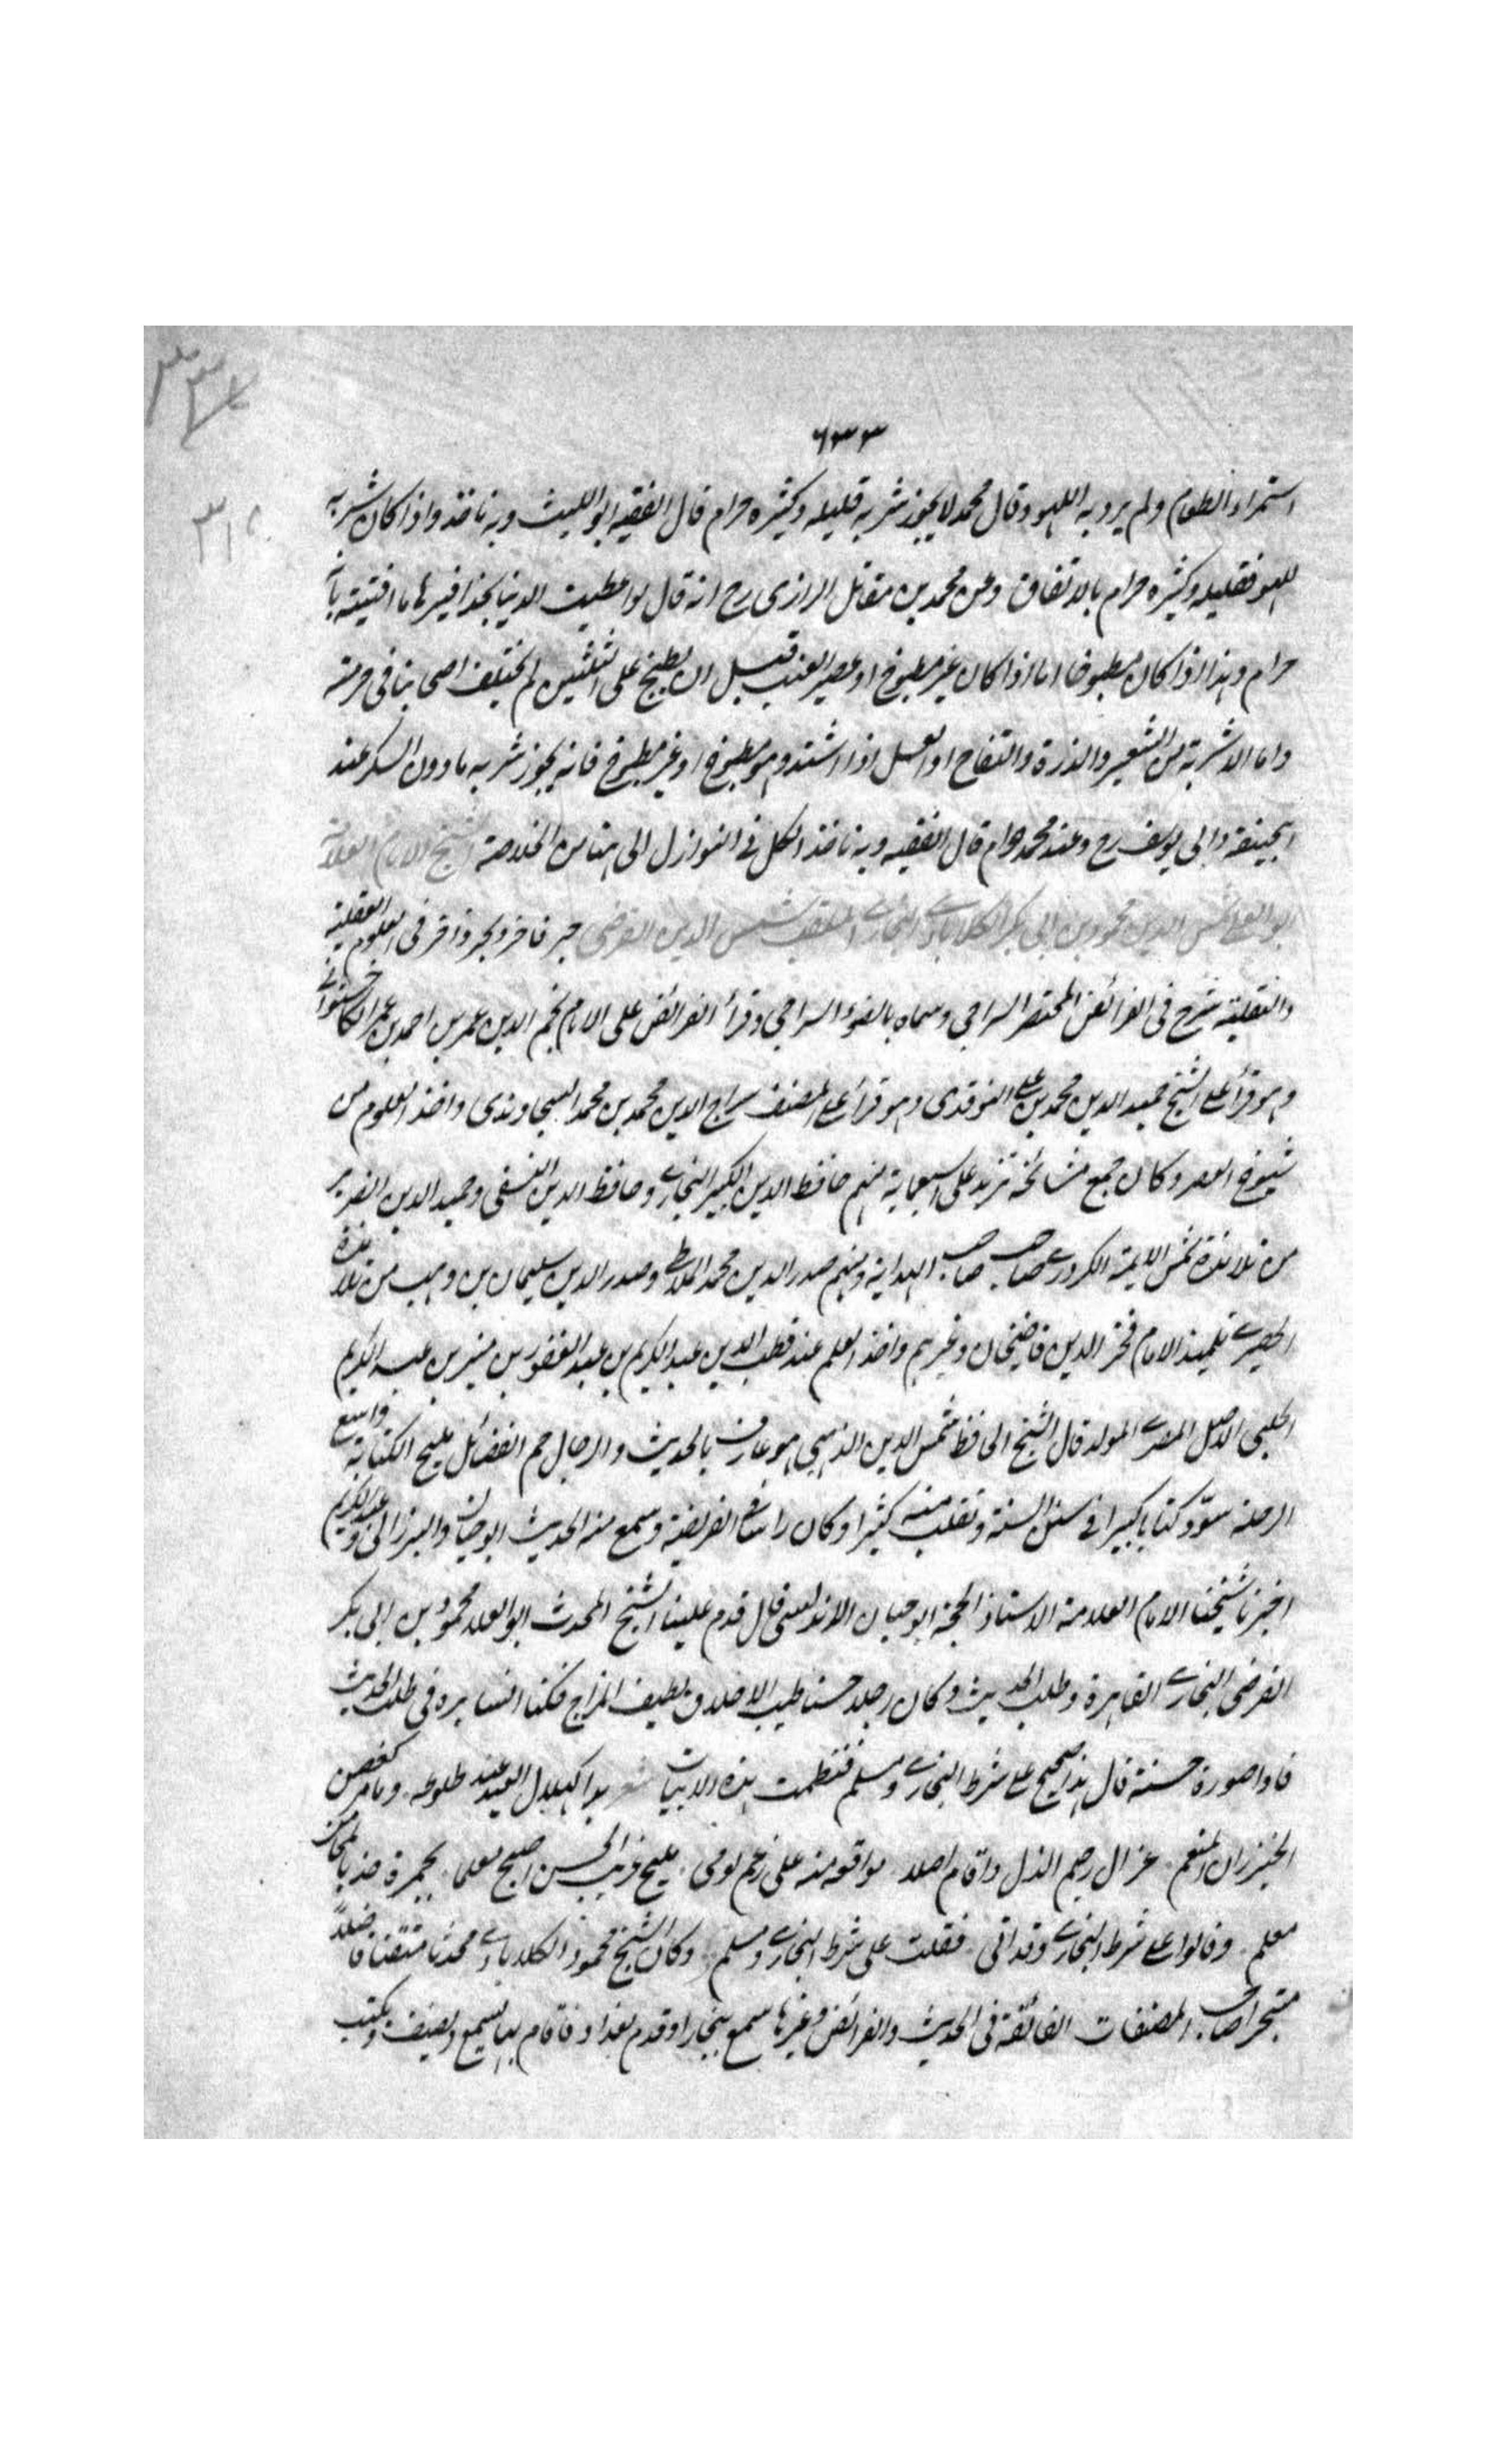 ٦٣٣
استمراء الطعام ولم يرد به اللهو وقال محمد لا يجوز شربه قليله وكثيره حرام قال الفقيه ابو الليث وبه ناخذ واذا كان شربه
للهو فقليله وكثيره حرام بالاتفاق وعن محمد بن مقاتل الرازى رح انه قال لو اعطيت الدنيا بحذافيرها ما افتيته بانه
حرام وهذا اذا كان مطبوخا اما اذا كان غير مطبوخ او عصير العنب قبل ان يطبخ على الثلثين لم يختلف اصحابنا فى حرمته
واما الاشربة من الشعير والذرة والتفاح او العسل اذا اشتد وهو مطبوخ او غير مطبوخ فانه يجوز شربه ما دون السكر عند
ابيحنيفة وابى يوسف رح وعند محمد حرام قال الفقيه وبه ناخذ الكل فى النوازل الى هنا من الخلاصة الشيخ الامام العلامة
ابو العلا شمس الدين محمود بن ابى بكر الكلاباذى البخارى الملقب شمس الدين الفرضى حبر فاخر وبحر وافر فى العلوم العقلية
والنقلية شرح فى الفرائض المختصر السراجى وسماه بالضوء السراجى وقرأ الفرائض على الامام نجم الدين عمر بن احمد بن عمر الكاخشتوانى
وهو قرأ على الشيخ حميد الدين محمد بن على النوقدى وهو قرأ على المصنف سراج الدين محمد بن محمد السجاوندى واخذ العلوم من
شيوخ العصر وكان جمع مشائخه تزيد على سبعماية منهم حافظ الدين الكبير البخارى وحافظ الدين النسفى وحميد الدين الضرير
من تلامذة شمس الايمة الكردرى صاحب صاحب الهداية ومنهم صدر الدين محمد الخلاطى وصدر الدين سليمان بن وهب من تلامذة
الحصيرى تلميذ الامام فخر الدين قاضيخان وغيرهم واخذ العلم عند قطب الدين عبد الكريم بن عبد الغفور بن منير بن عبد الكريم
الحلبى الاصل المصرى المولد قال الشيخ الحافظ شمس الدين الذهبى هو عارف بالحديث والرجال جم الفضائل مليح الكتابة واسع
الرحلة سوّد كتابا كبيرا فى سنن السنة ونقلت منه كثيرا وكان راسا فى الفريضة وسمع منه الحديث ابو حيان والبرزالى وعبد الكريم
اخبرنا شيخنا الامام العلامة الاستاذ الحجة ابو حيان الاندلسى قال قدم علينا الشيخ المحدث ابو العلا محمود بن ابى بكر
الفرضى البخارى القاهرة وطلب الحديث وكان رجلا حسنا طيب الاخلاق لطيف المزاج فكنا نسايره فى طلب الحديث
فاذا صورة حسنة قال هذا صحيح على شرط البخارى ومسلم فنظمت هذه الابيات شعر بدا كهلال العيد عند طلوعه وماس كغصن
الخيزران المنعم غزال رخيم الدل واقام اصلا مواقعه منه على زعم لومى مليح غريب الحسن اصبح معلما بحمرة خد بالمحاسن
معلم وقالوا على شرط البخارى وقد اتى فقلت على شرط البخارى ومسلم وكان الشيخ محمود الكلاباذى محدثا متقنا فاضلاً
متبحرا صاحب المصنفات الفائقة فى الحديث والفرائض وغيرها سمع ببخارا وقدم بغداد فاقام بها يسمع ويصنف ويكتب